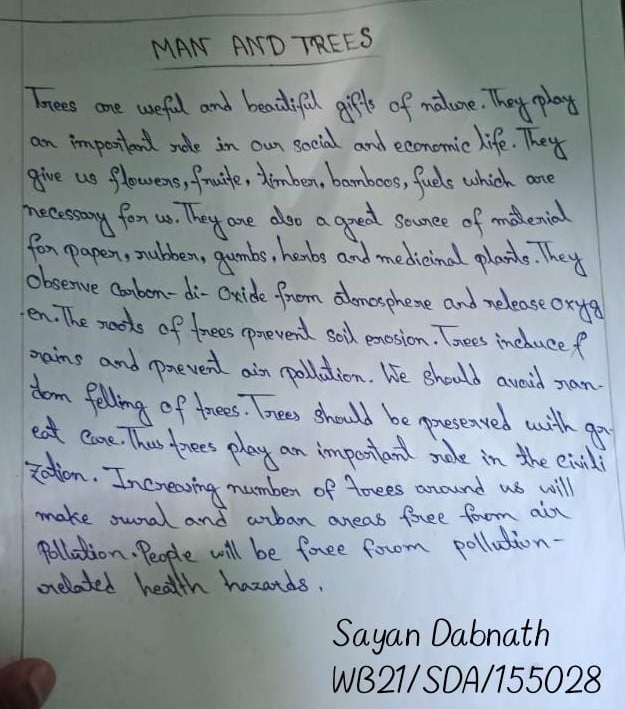 MAN AND TREES
Trees are useful and beautiful gifts of nature. They play
an important role in our social and economic life. They
give us flowers, fruits, timber, bamboos, fuels which are
necessary for us. They are also a great source of material
for paper, rubber, gumbs, herbs and medicinal plants. They
Observe Carbon-di-Oxide from atmosphere and release oxyg
-en. The roots of trees prevent soil erosion. Trees induce f
rains and prevent air pollution. We should avoid ran-
dom felling of trees. Trees should be preserved with gr-
eat care. Thus trees play an important role in the civili
zation. Increasing number of trees around us will
make rural and urban areas free from air
Pollution. People will be free from pollution-
related health hazards.
Sayan Dabnath
WB21/SDA/155028